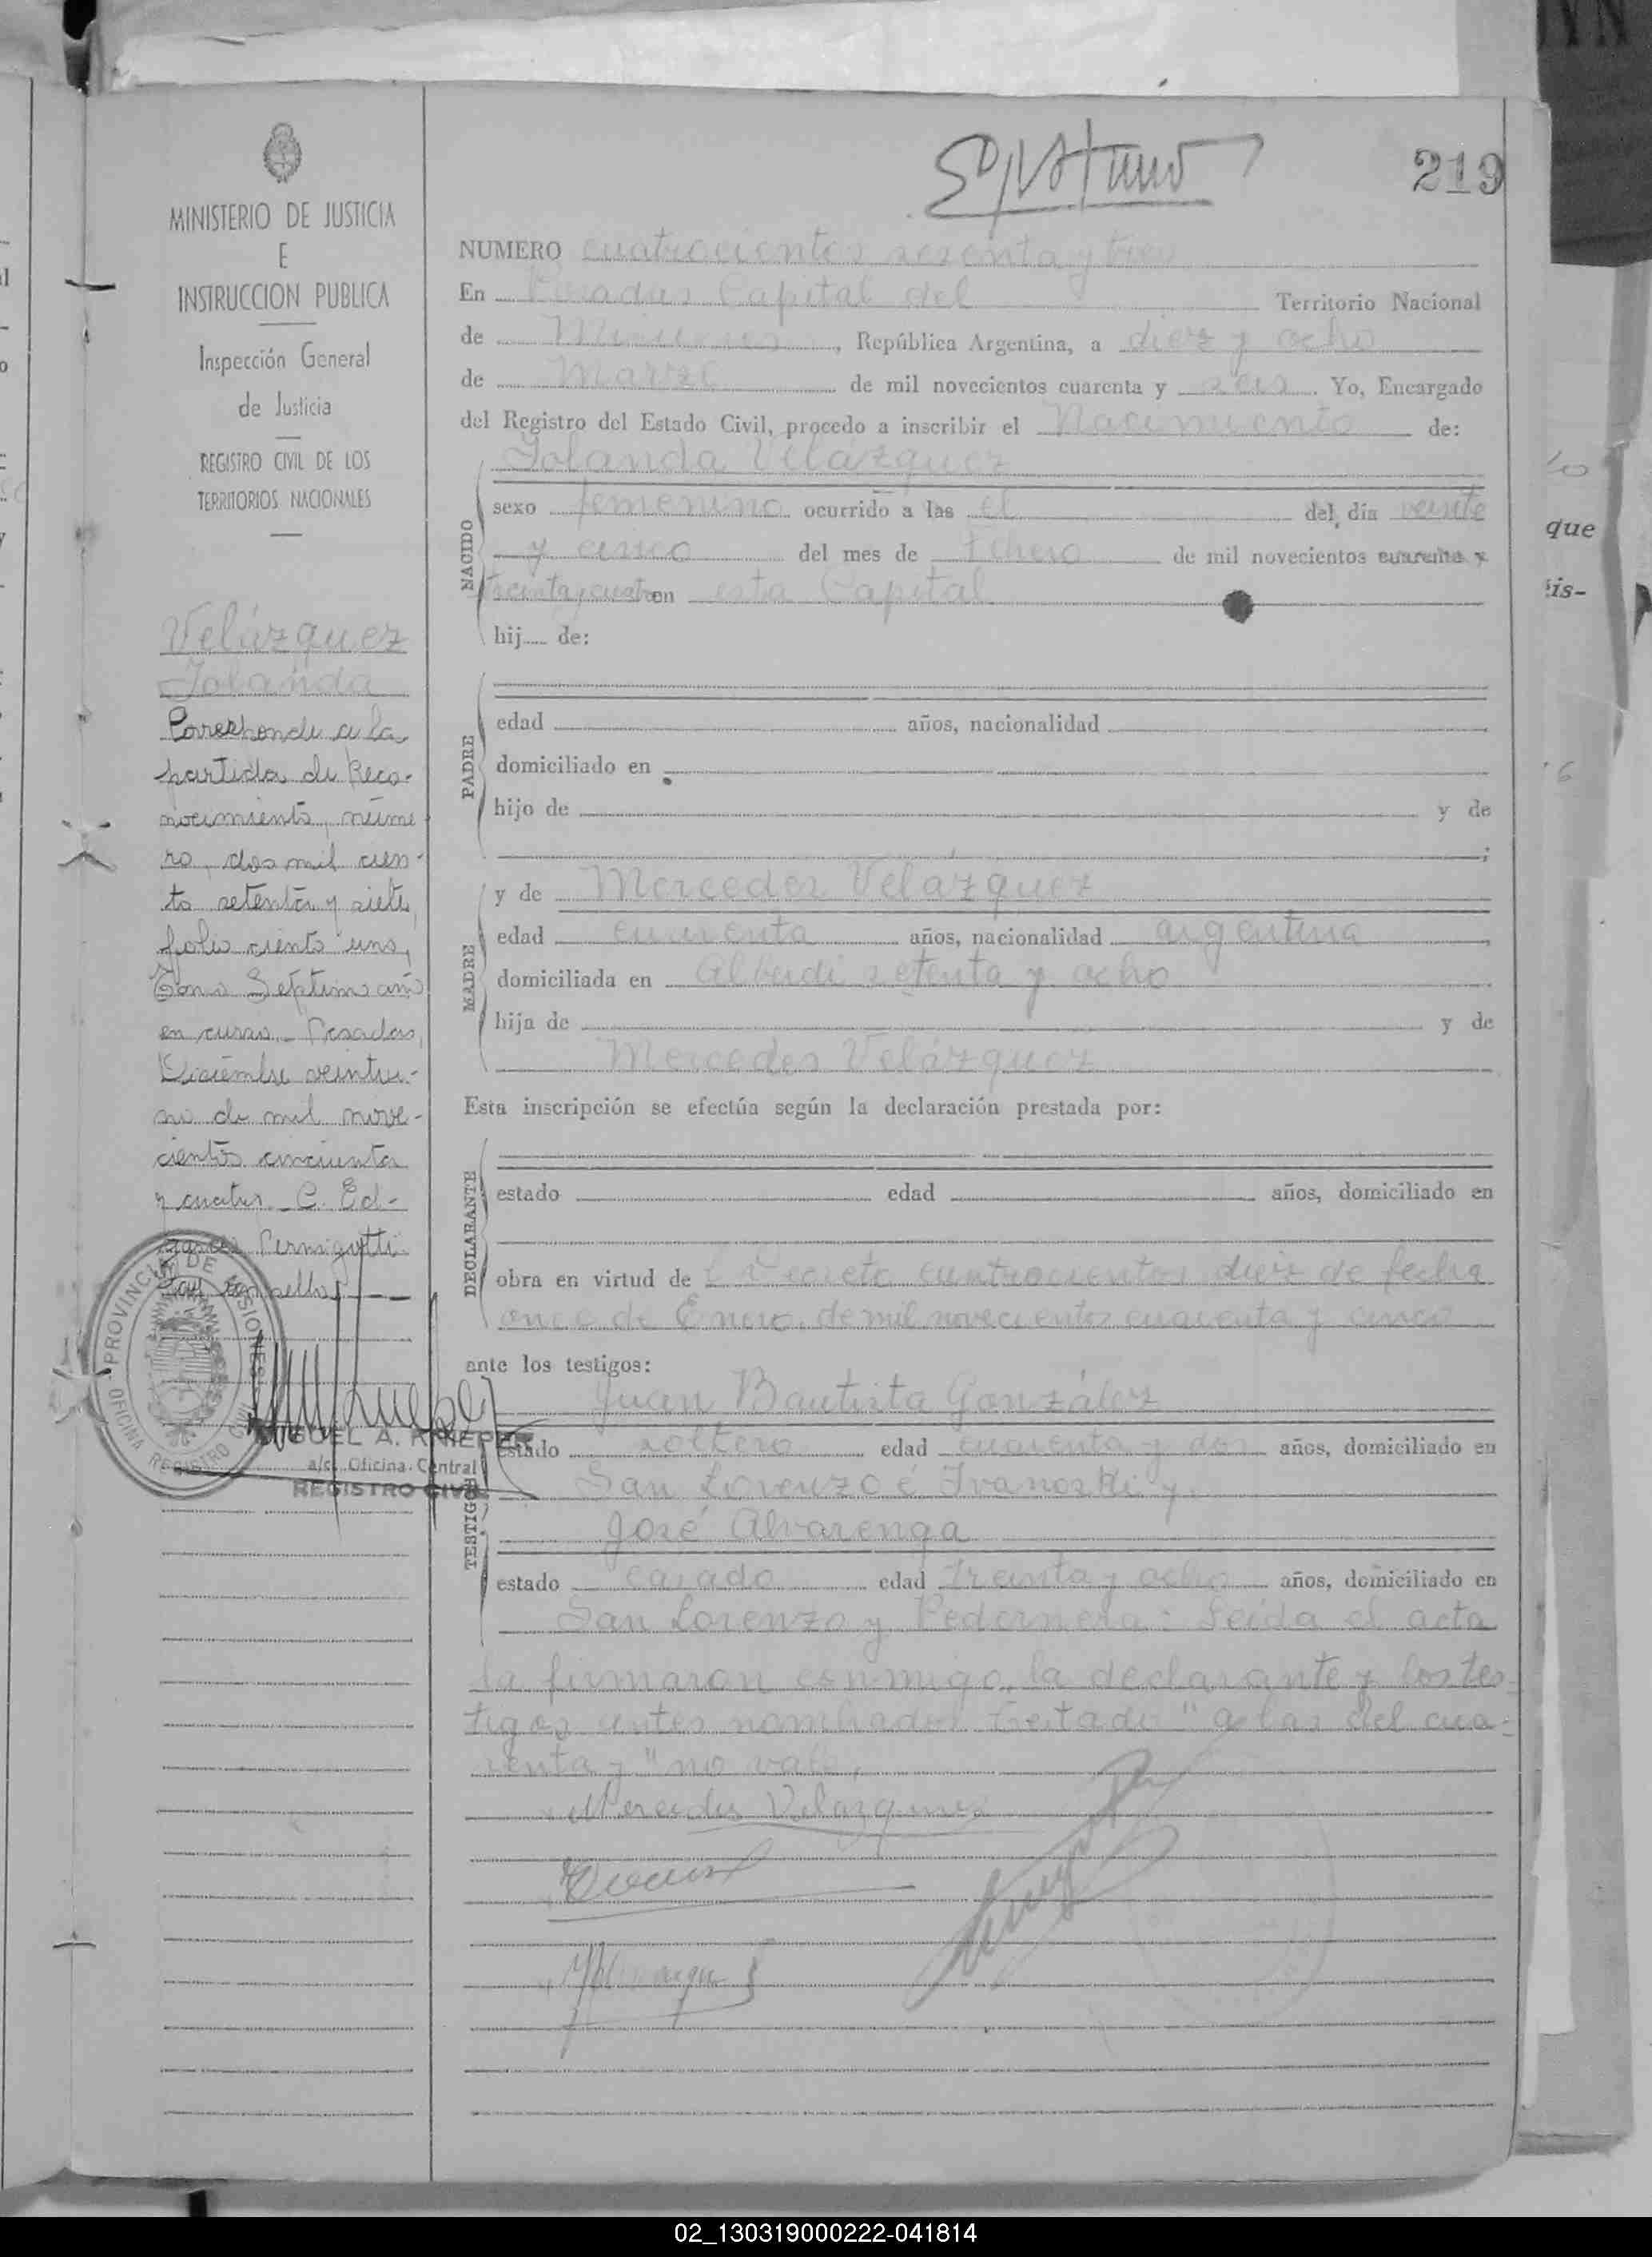 219
MINISTERIO DE JUSTICIA
E
INSTRUCCION PUBLICA
Inspección General
de Justicia
REGISTRO CIVIL DE LOS
TERRITORIOS NACIONALES
Velázquez
Iolanda
Corresponde a la
partida de Reco-
nocimiento, núme
ro, dos mil cien-
to setenta y siete,
folio ciento uno,
Tomo Septimo año
en curso.- Posadas,
Diciembre veintiu-
no de mil nove-
cientos cincuenta
y cuatro. C. Ed-
PROVINCIA DE MISIONES
OFICINA REGISTRO CIVIL
MIGUEL A. KNIEPER
a/c. Oficina Central
REGISTRO CIVIL
NUMERO cuatrocientos sesenta y tres
En Posadas Capital del Territorio Nacional
de Misiones, República Argentina, a diez y ocho
de Marzo de mil novecientos cuarenta y seis. Yo, Encargado
del Registro del Estado Civil, procedo a inscribir el Nacimiento de:
NACIDO
Iolanda Velazquez
sexo femenino ocurrido a las el del día veinte
y cinco del mes de Febrero de mil novecientos cuarenta y
treinta y cuatro en esta Capital
hij de:
PADRE
edad años, nacionalidad
domiciliado en
hijo de y de
;
MADRE
y de Mercedes Velázquez
edad cuarenta años, nacionalidad argentina
domiciliada en Alberdi setenta y ocho
hija de y de
Mercedes Velázquez
Esta inscripción se efectúa según la declaración prestada por:
DECLARANTE
estado edad años, domiciliado en
obra en virtud de Decreto cuatrocientos diez de fecha
once de Enero de mil novecientos cuarenta y cinco
ante los testigos:
TESTIGOS
Juan Bautista González
estado soltero edad cuarenta y dos años, domiciliado en
San Lorenzo é Ivanoski y
José Alvarenga
estado casado edad treinta y ocho años, domiciliado en
San Lorenzo y Pedernera: Leida el acta
la firmaron conmigo, la declarante y los tes-
tigos antes nombrados Testado "a las del cua-
renta y" no vale,
Mercedes Velazquez
que
is-
02_130319000222-041814